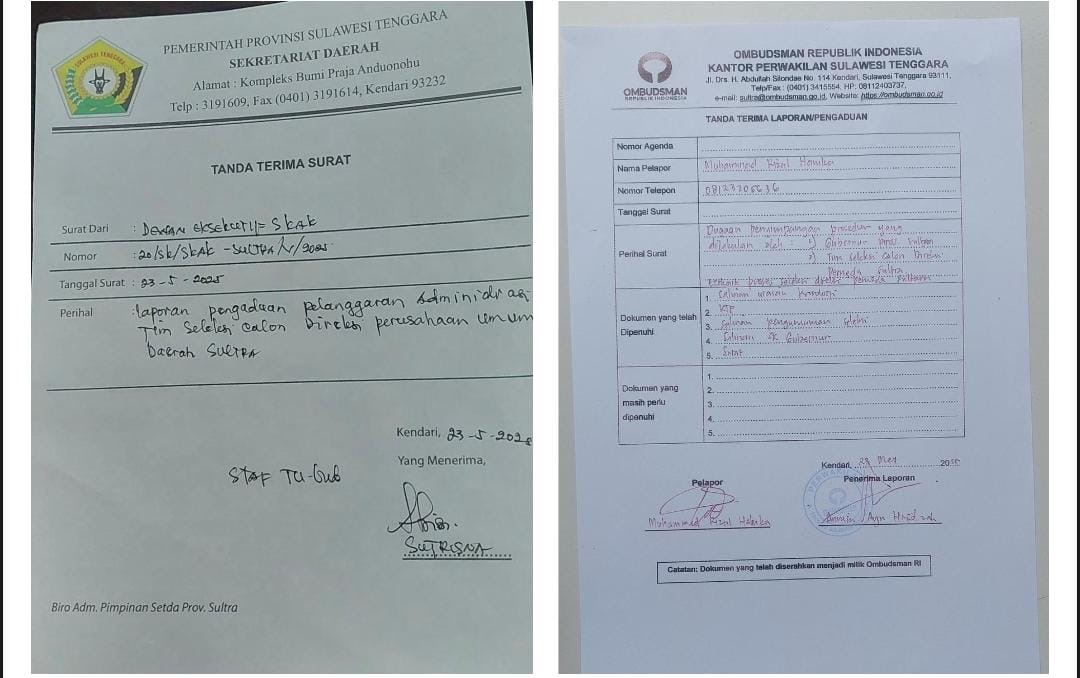 PEMERINTAH PROVINSI SULAWESI TENGGARA
SEKRETARIAT DAERAH
Alamat : Kompleks Bumi Praja Anduonohu
Telp : 3191609, Fax (0401) 3191614, Kendari 93232
TANDA TERIMA SURAT
Surat Dari : DEWAN EKSEKUTIF SKAK
Nomor : 20/SK/SKAK-SULTRA/V/2025
Tanggal Surat : 23-5-2025
Perihal : laporan pengaduan pelanggaran Administrasi
Tim Seleksi Calon Direksi perusahaan umum
Daerah SULTRA
Kendari, 23-5-2025
Yang Menerima,
STAF TU-Gub
SUTRISNA
Biro Adm. Pimpinan Setda Prov. Sultra
OMBUDSMAN
REPUBLIK INDONESIA
OMBUDSMAN REPUBLIK INDONESIA
KANTOR PERWAKILAN SULAWESI TENGGARA
Jl. Drs. H. Abdullah Silondae No. 114 Kendari, Sulawesi Tenggara 93111,
Telp/Fax : (0401) 3415554, HP: 08112403737,
e-mail: sultra@ombudsman.go.id, Website: https://ombudsman.go.id
TANDA TERIMA LAPORAN/PENGADUAN
Nomor Agenda
Nama Pelapor Muhammad Rizal Hamka
Nomor Telepon
Tanggal Surat
Perihal Surat Dugaan penyimpangan prosedur yang
dilakukan oleh : 1) Gubernur Prov. Sultra
2) Tim Seleksi Calon Direksi
Perumda Sultra
Dokumen yang telah Dipenuhi
1.
2. KTP
3. Salinan pengumuman seleksi
4. Salinan SK Gubernur
5. Surat
Dokumen yang masih perlu dipenuhi
1.
2.
3.
4.
5.
Kendari, 23 Mei 2025
Pelapor
Penerima Laporan
Muhammad Rizal Hamka
Catatan: Dokumen yang telah diserahkan menjadi milik Ombudsman RI